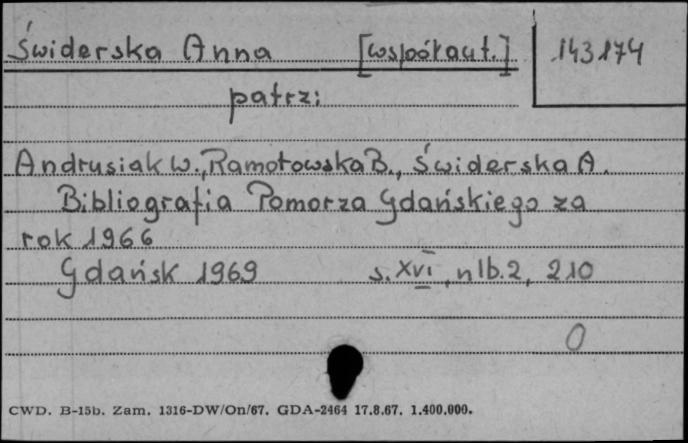 Świderska Anna [współaut.] 143174
patrz:
Andrusiak W., Ramotowska B., Świderska A.
Bibliografia Pomorza Gdańskiego za
rok 1966
Gdańsk 1969 s. XVI, nlb. 2, 210
0
CWD. B-15b. Zam. 1316-DW/On/67. GDA-2464 17.8.67. 1.400.000.